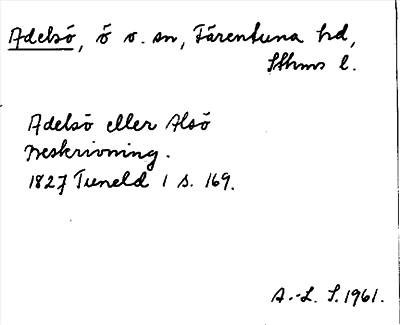 Adelsö, ö o. sn, Färentuna hd,
Sthms l.
Adelsö eller Alsö
Beskrivning.
1827 Tuneld 1 s. 169.
A.-L. S. 1961.